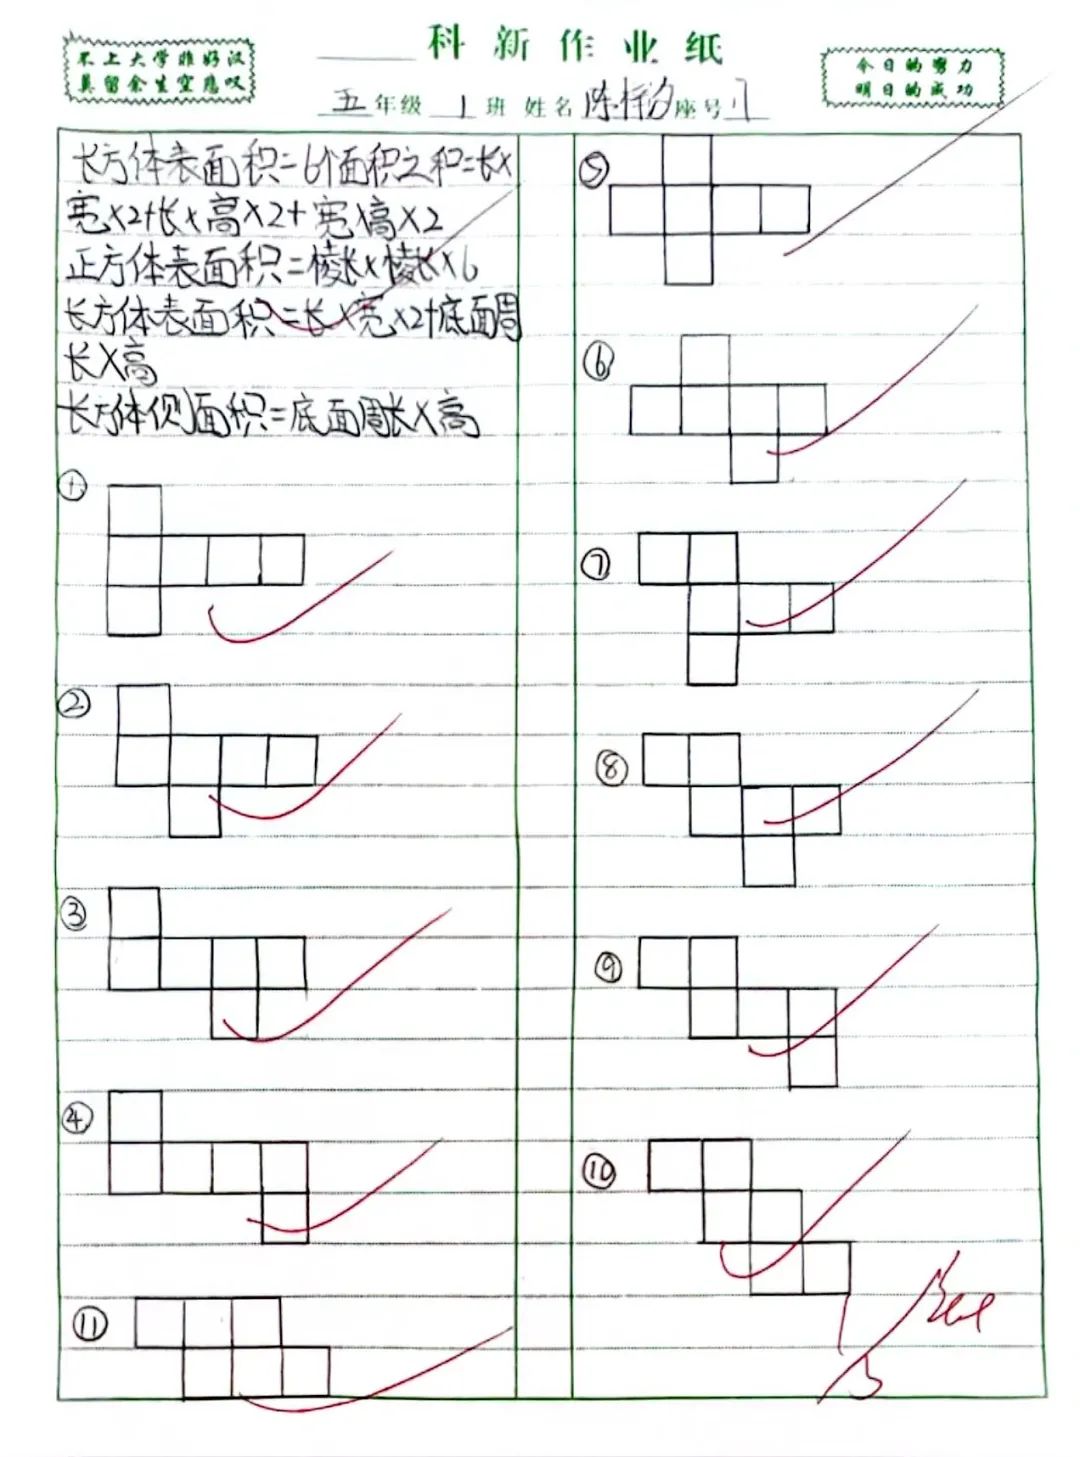 科新作业纸
不上大学非好汉
莫留余生空悲叹
今日的努力
明日的成功
五年级 1 班 姓名 陈梓汐 座号
长方体表面积=6个面积之和=长×
宽×2+长×高×2+宽×高×2
正方体表面积=棱长×棱长×6
长方体表面积=长×宽×2+底面周
长×高
长方体侧面积=底面周长×高
①
②
③
④
⑪
⑤
⑥
⑦
⑧
⑨
⑩